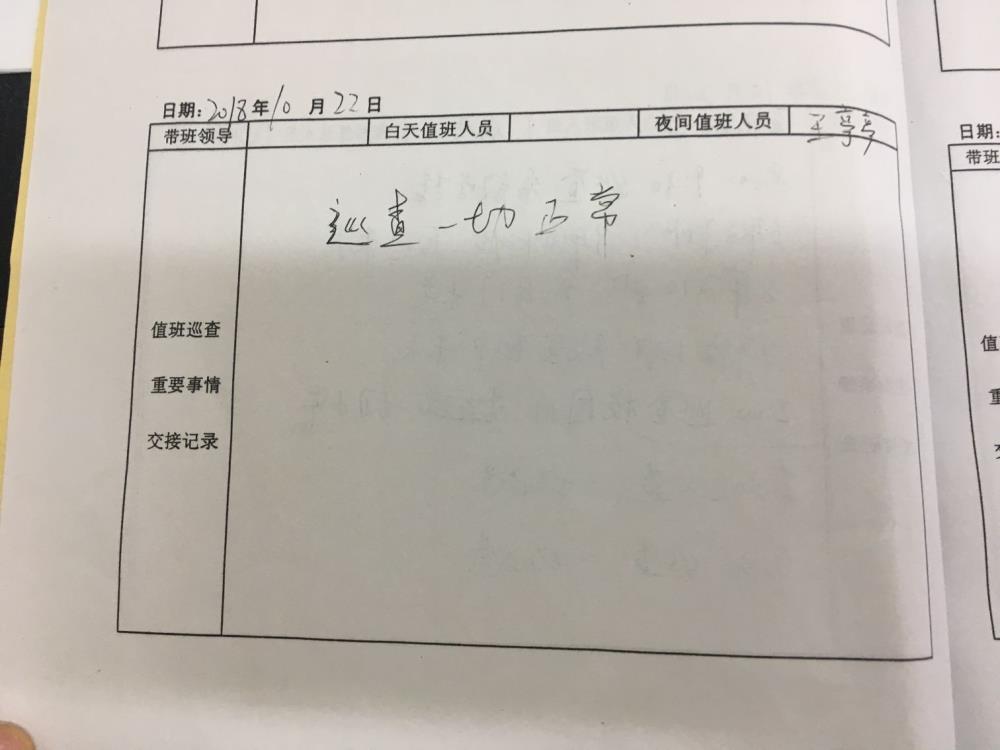 日期:2018年10月22日
带班领导 白天值班人员 夜间值班人员
巡查一切正常
值班巡查
重要事情
交接记录
日期:
带班
值
重